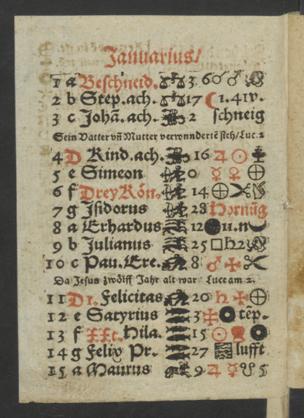 Januarius/
1 a Beschneid. 3 6 ☍ ♂
2 b Step.ach. 17 ☾ 1. 4 u.
3 c Johā.ach. 2 schneig
Sein Vatter vñ Mutter verwunderiē sich/Luc.2
4 D Kind.ach. 16 ♃ ☉
5 e Simeon 0 ☿ ♀ ⊕
6 f Drey Kön. 14 ⊕ ✂
7 g Isidorus 28 Hornūg
8 a Erhardus 12 ● 11.n
9 b Julianus 25 □ ♄ 2
10 c Pau.Ere. 8 ♂ ✠ ✂
Da Jesus zwölff Jahr alt war/ Luce am 2.
11 D 1. Felicitas 20 ♄ ✠ ⊕
12 e Satyrius 3
13 f Hila. 15 ☉
14 g Felix Pr. 27 lufft
15 a Maurus 9 ♃ ☿ 5